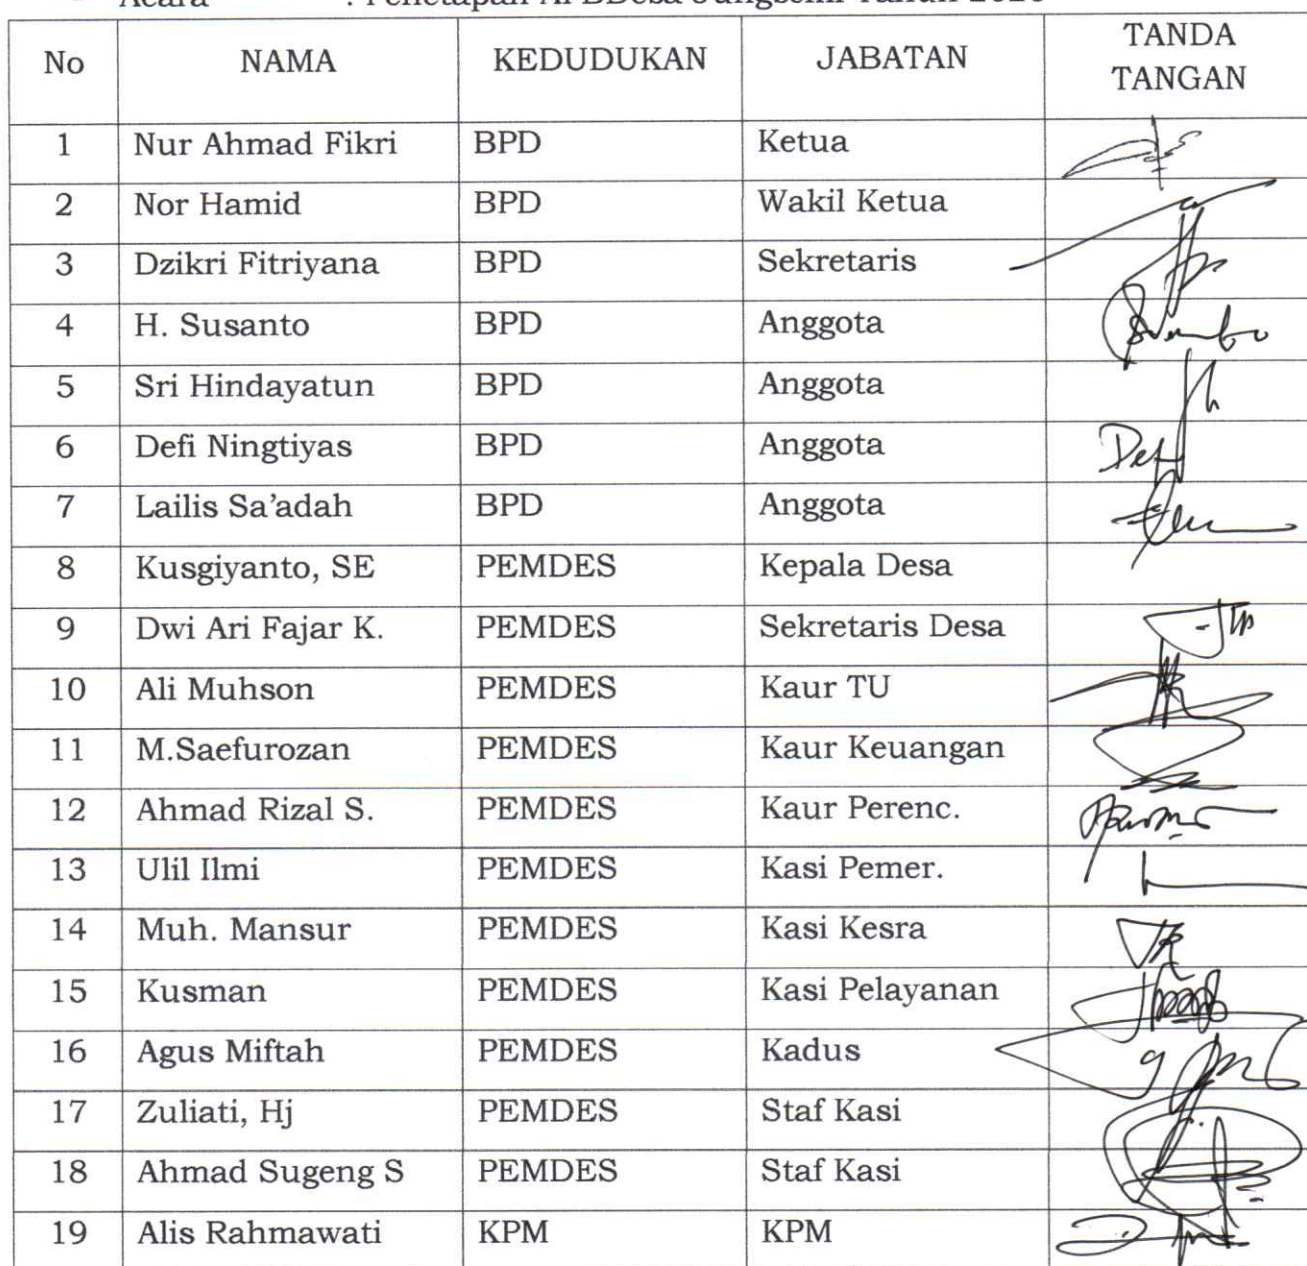 Acara : Penetapan APBDesa Jungsemi Tahun
No NAMA KEDUDUKAN JABATAN TANDA TANGAN
1 Nur Ahmad Fikri BPD Ketua
2 Nor Hamid BPD Wakil Ketua
3 Dzikri Fitriyana BPD Sekretaris
4 H. Susanto BPD Anggota
5 Sri Hindayatun BPD Anggota
6 Defi Ningtiyas BPD Anggota
7 Lailis Sa'adah BPD Anggota
8 Kusgiyanto, SE PEMDES Kepala Desa
9 Dwi Ari Fajar K. PEMDES Sekretaris Desa
10 Ali Muhson PEMDES Kaur TU
11 M.Saefurozan PEMDES Kaur Keuangan
12 Ahmad Rizal S. PEMDES Kaur Perenc.
13 Ulil Ilmi PEMDES Kasi Pemer.
14 Muh. Mansur PEMDES Kasi Kesra
15 Kusman PEMDES Kasi Pelayanan
16 Agus Miftah PEMDES Kadus
17 Zuliati, Hj PEMDES Staf Kasi
18 Ahmad Sugeng S PEMDES Staf Kasi
19 Alis Rahmawati KPM KPM